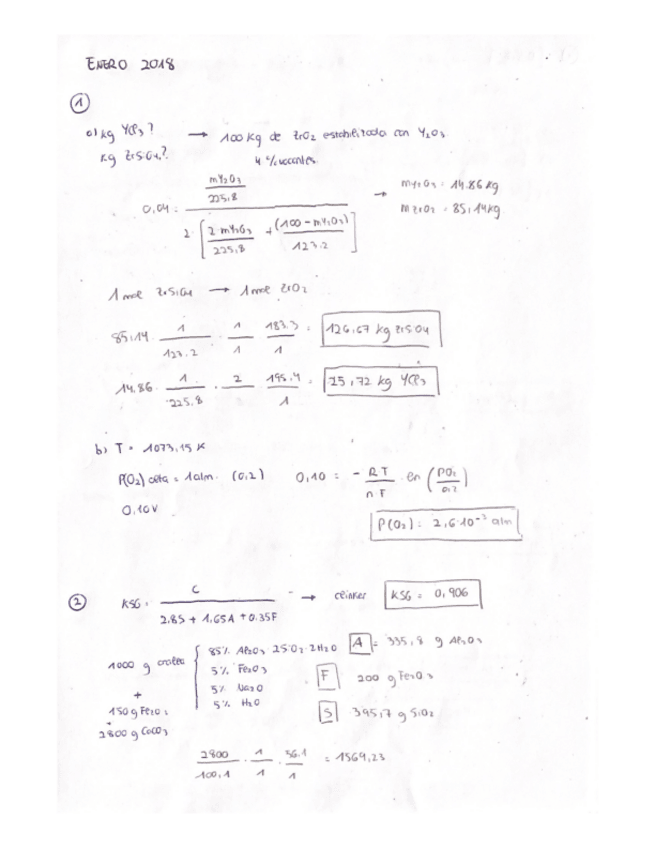 ENERO 2018
①
a) kg YCl₃? → 100 kg de ZrO₂ estabilizada con Y₂O₃
kg ZrSiO₄? 4 % vacantes
0,04 = (mY₂O₃ / 225,8) / (2 · [2·mY₂O₃ / 225,8 + (100 - mY₂O₃) / 123.2]) → mY₂O₃ = 14.86 kg
mZrO₂ = 85,14 kg
1 mol ZrSiO₄ → 1 mol ZrO₂
85,14 · 1/123.2 · 1/1 · 183.3/1 = 126,67 kg ZrSiO₄
14.86 · 1/225.8 · 2 · 195.4/1 = 25,72 kg YCl₃
b) T = 1073,15 K
P(O₂) celta = 1 atm. (0,2) 0,10 = - RT/nF · ln (PO₂/0,2)
0,10 V
P(O₂) = 2,6·10⁻³ atm
② KSG = C / (2.8S + 1.65A + 0.35F) → clinker KSG = 0,906
1000 g arcilla { 85% Al₂O₃·2SiO₂·2H₂O A = 335,8 g Al₂O₃
5% Fe₂O₃ F 200 g Fe₂O₃
+ 5% Na₂O
150 g Fe₂O₃ 5% H₂O S 395,7 g SiO₂
+
2800 g CaCO₃
2800/100,1 · 1/1 · 56.1/1 = 1569,23